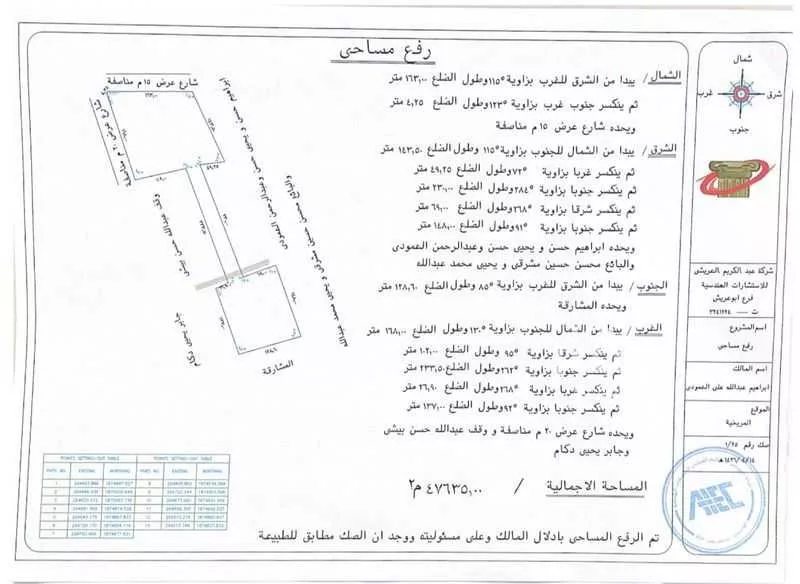 رفع مساحى
الشمال / يبدا من الشرق للغرب بزاوية °١١٥ وطول الضلع ١٦٣,٠٠ متر
ثم ينكسر جنوب غرب بزاوية °١٢٣ وطول الضلع ٤,٢٥ متر
ويحده شارع عرض ١٥ م مناصفة
الشرق / يبدا من الشمال للجنوب بزاوية °١١٥ وطول الضلع ١٤٣,٥٠ متر
ثم ينكسر غربا بزاوية °٧٢ وطول الضلع ٤٩,٢٥ متر
ثم ينكسر جنوبا بزاوية °٢٨٤ وطول الضلع ٢٣٠,٠٠ متر
ثم ينكسر شرقا بزاوية °٢٦٨ وطول الضلع ٦٩,٠٠ متر
ثم ينكسر جنوبا بزاوية °٩١ وطول الضلع ١٤٨,٠٠ متر
ويحده ابراهيم حسن و يحيى حسن وعبدالرحمن العمودى
والبائع محسن حسين مشرقى و يحيى محمد عبدالله
الجنوب / يبدا من الشرق للغرب بزاوية °٨٥ وطول الضلع ١٢٨,٦٠ متر
ويحده المشارقة
الغرب / يبدا من الشمال للجنوب بزاوية °١٣٠ وطول الضلع ١٦٨,٠٠ متر
ثم ينكسر شرقا بزاوية °٩٥ وطول الضلع ١٠٢,٠٠ متر
ثم ينكسر جنوبا بزاوية °٢٦٢ وطول الضلع ٢٣٣,٥٠ متر
ثم ينكسر غربا بزاوية °٢٦٨ وطول الضلع ٢٦,٩٠ متر
ثم ينكسر جنوبا بزاوية °٩٢ وطول الضلع ١٣٧,٠٠ متر
ويحده شارع عرض ٢٠ م مناصفة و وقف عبدالله حسن بيشى
وجابر يحيى دكام
المساحة الاجمالية / ٤٧٦٣٥,٠٠ م٢
تم الرفع المساحى بادلال المالك وعلى مسئوليته ووجد ان الصك مطابق للطبيعة
شمال
شرق
غرب
جنوب
شركة عبد الكريم العريشى
للاستشارات الهندسية
فرع ابوعريش
ت ---- ٣٢٤١٢٢٤
اسم المشروع
رفع مساحى
اسم المالك
ابراهيم عبدالله على العمودى
الموقع
المريخية
صك رقم ١/٢٥
شارع عرض ١٥ م مناصفة
شارع عرض ٢٠ م مناصفة
ابراهيم حسن و يحيى حسن وعبدالرحمن العمودى
والبائع محسن حسين مشرقى و يحيى محمد عبدالله
وقف عبدالله حسن بيشى
جابر يحيى دكام
المشارقة
POINTS SETTING-OUT TABLE
POINTS SETTING-OUT TABLE